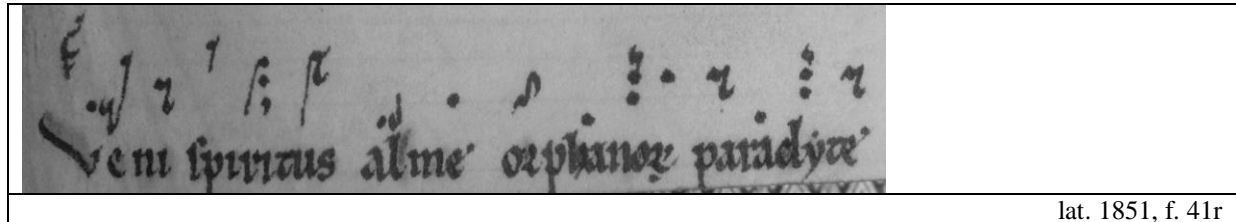 Veni spiritus alme orphanoꝝ paraclyte
lat. 1851, f. 41r